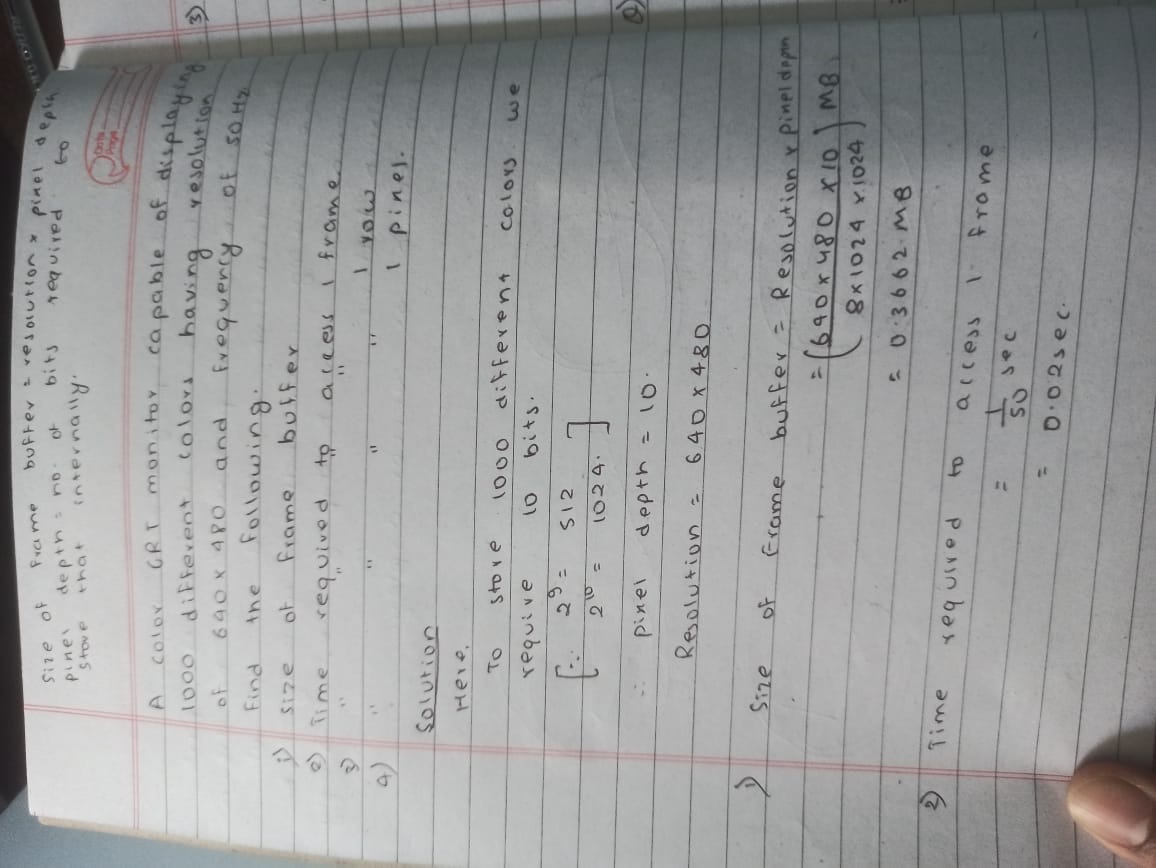 Size of Frame buffer = resolution x pixel depth
Pixel depth = no. of bits required to
store that internally.
Date
Page
A color CRT monitor capable of displaying
1000 different colors having resolution
of 640 x 480 and frequency of 50 Hz
Find the following.
1) Size of frame buffer
2) Time required to access 1 frame
3) " " " " 1 row
4) " " " " 1 pixel.
Solution
Here,
To store 1000 different colors we
require 10 bits.
[∵ 2^9 = 512
2^10 = 1024. ]
∴ pixel depth = 10.
Resolution = 640 x 480
1) Size of Frame buffer = Resolution x pixel depth
= (640 x 480 x 10 / 8 x 1024 x 1024) MB
= 0.3662 MB
2) Time required to access 1 frame
= 1/50 sec
= 0.02 sec.
3)